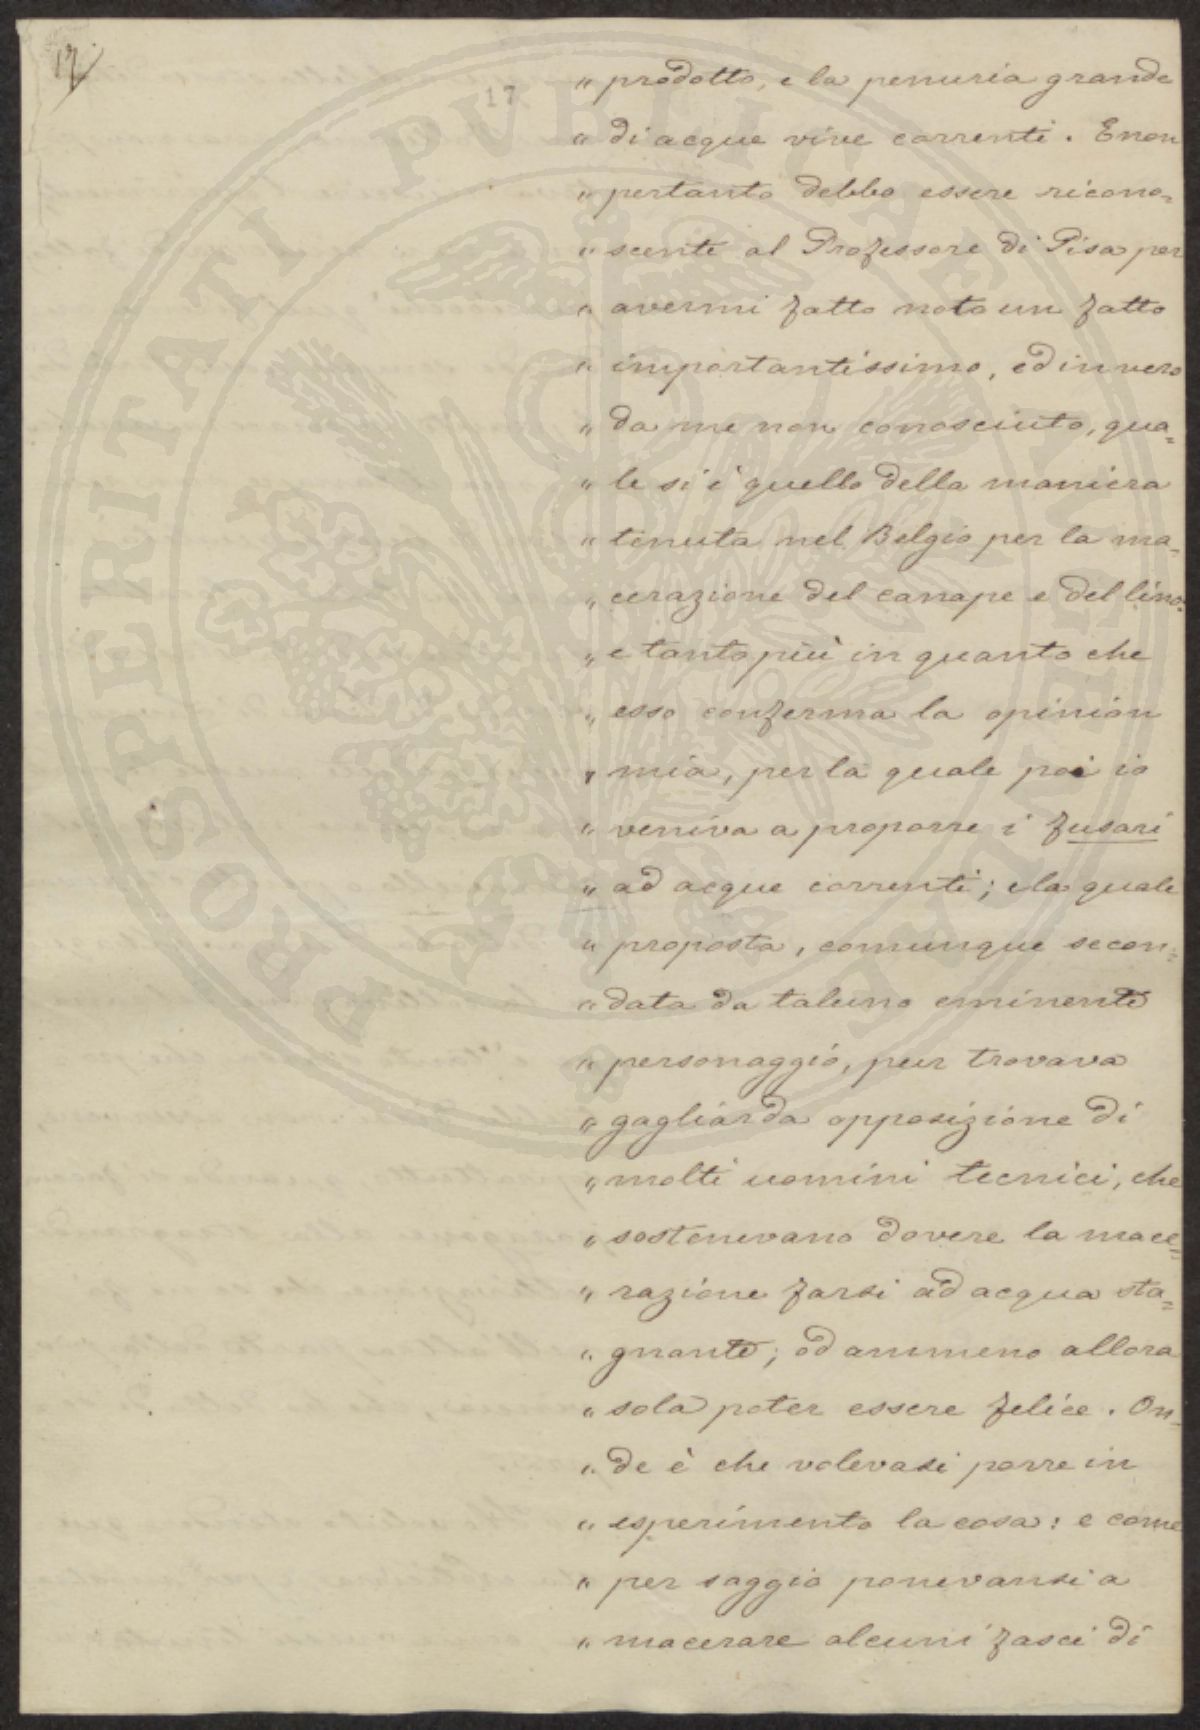 17
17
" prodotto, e la penuria grande
" di acque vive correnti. E non
" pertanto debbo essere ricono=
" scente al Professore di Pisa per
" avermi fatto noto un fatto
" importantissimo, ed in vero
" da me non conosciuto, qua=
" le si è quello della maniera
" tenuta nel Belgio per la ma=
" cerazione del canape e del lino:
" e tanto più in quanto che
" esso conferma la opinion
" mia, per la quale poi io
" veniva a proporre i fusari
" ad acque correnti; e la quale
" proposta, comunque secon=
" data da taluno eminente
" personaggio, pur trovava
" gagliarda opposizione di
" molti uomini tecnici, che
" sostenevano dovere la mace=
" razione farsi ad acqua sta=
" gnante; od ammeno allora
" sola poter essere felice. On=
" de è che volevasi porre in
" esperimento la cosa: e come
" per saggio ponevansi a
" macerare alcuni fasci di
PROSPERITATI PUBLICAE AUGENDAE